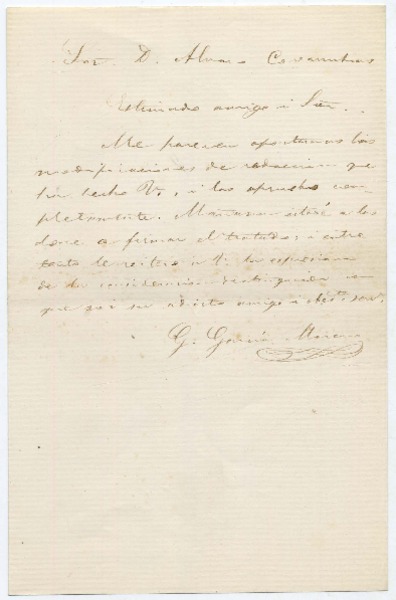 Sor. D. Alvaro Covarrubias
Estimado amigo i Sor.
Me parecen oportunas las
modificaciones de redaccion que
ha hecho V., i las apruebo com-
pletamente. Mañana estaré a las
doce a firmar el tratado; i entre
tanto le reitero a V. la espresion
de la consideracion distinguida con
que soi su adicto amigo i obte. ser.
G. García Moreno